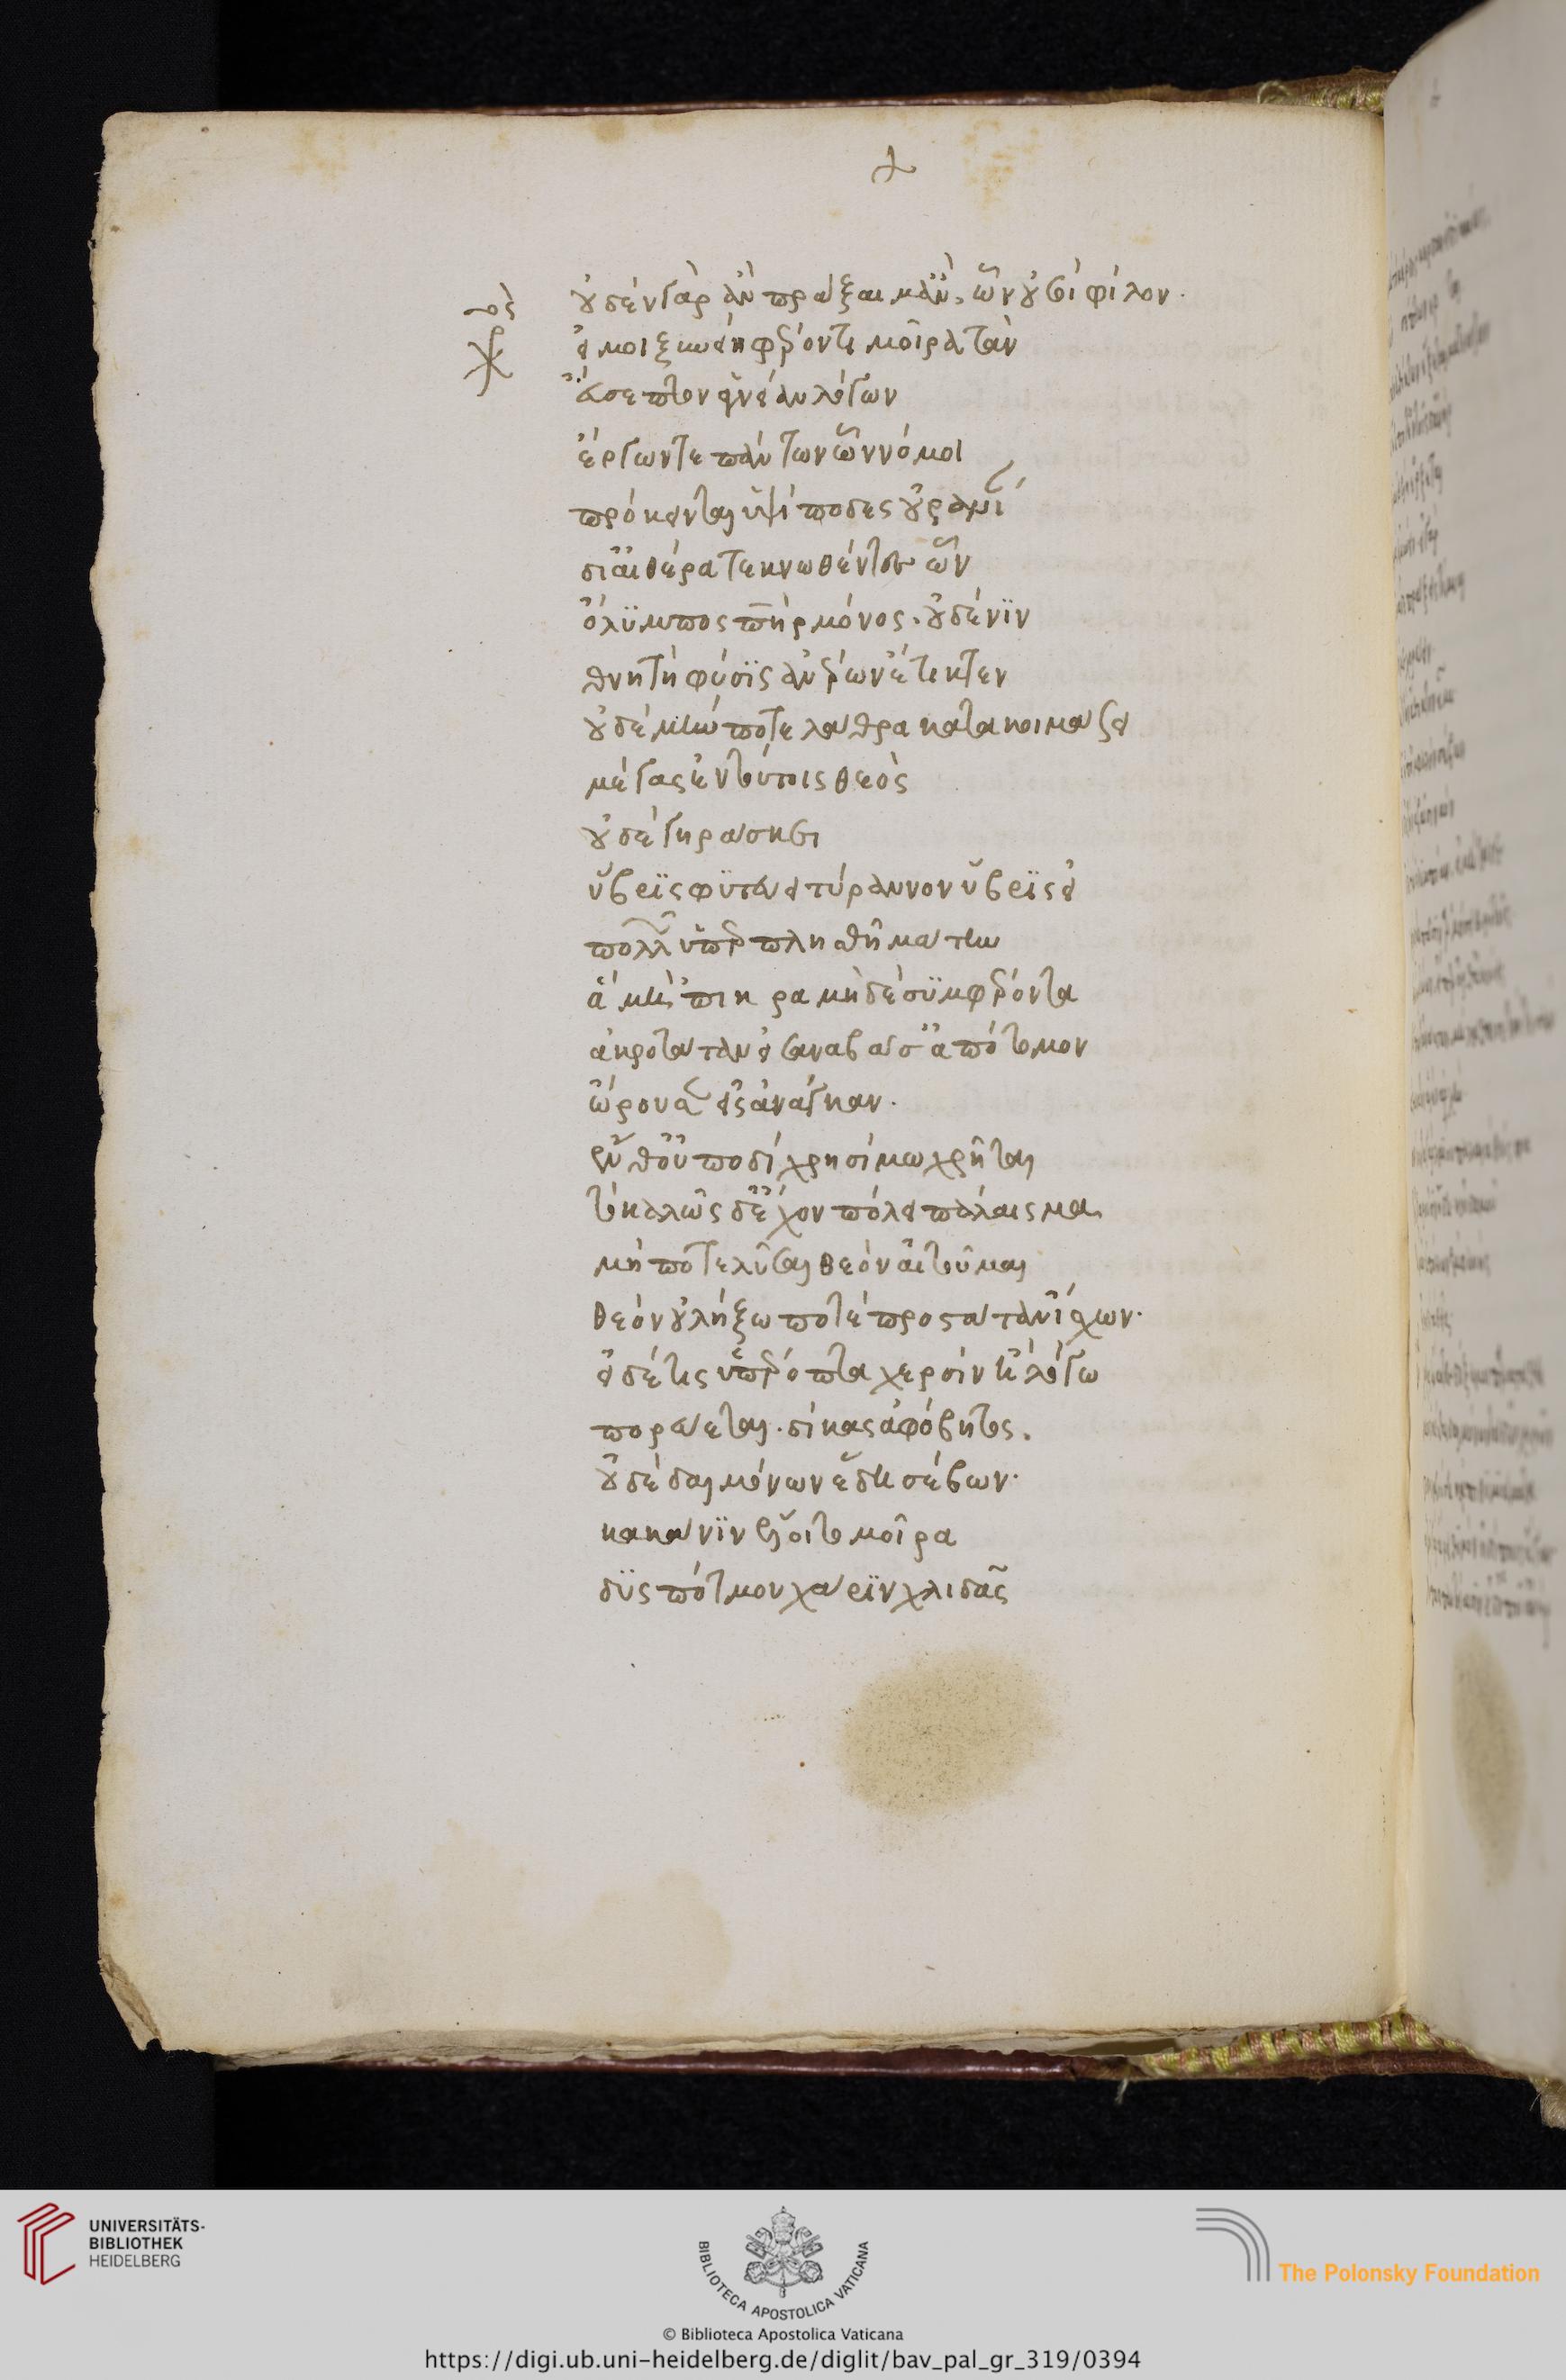 οὐδὲν γὰρ ἂν πράξαιμ' ἂν, ὧν οὐ σοὶ φίλον.
εἴ μοι ξυνείη φέροντι μοῖρα τὰν
εὔσεπτον ἁγνείαν λόγων
ἔργων τε πάντων ὧν νόμοι
πρόκεινται ὑψίποδες οὐρανίαν
δι' αἰθέρα τεκνωθέντες ὧν
ὄλυμπος πατὴρ μόνος. οὐδέ νιν
θνητὴ φύσις ἀνέρων ἔτικτεν
οὐδὲ μήν ποτε λάθρα κατακοιμάζει
μέγας ἐν τούτοις θεὸς
οὐδὲ γηράσκει
ὕβρις φυτεύει τύραννον ὕβρις εἰ
πολλῶν ὑπερπλησθῇ μάταν
ἃ μὴ 'πίκαιρα μηδὲ συμφέροντα
ἀκροτάταν εἰσαναβᾶσ' ἀπότομον
ὤρουσεν εἰς ἀνάγκαν.
ἔνθ' οὐ ποδὶ χρησίμω χρῆται
τὸ καλῶς δ' ἔχον πόλει πάλαισμα
μήποτε λῦσαι θεὸν αἰτοῦμαι
θεὸν οὐ λήξω ποτὲ προστάταν ἴσχων.
εἰ δέ τις ὑπέροπτα χερσὶν ἢ λόγω
πορεύεται. δίκας ἀφόβητος.
οὐδὲ δαιμόνων ἕδη σέβων.
κακά νιν ἕλοιτο μοῖρα
δυσπότμου χάριν χλιδᾶς
UNIVERSITÄTS-
BIBLIOTHEK
HEIDELBERG
BIBLIOTECA APOSTOLICA VATICANA
The Polonsky Foundation
© Biblioteca Apostolica Vaticana
https://digi.ub.uni-heidelberg.de/diglit/bav_pal_gr_319/0394